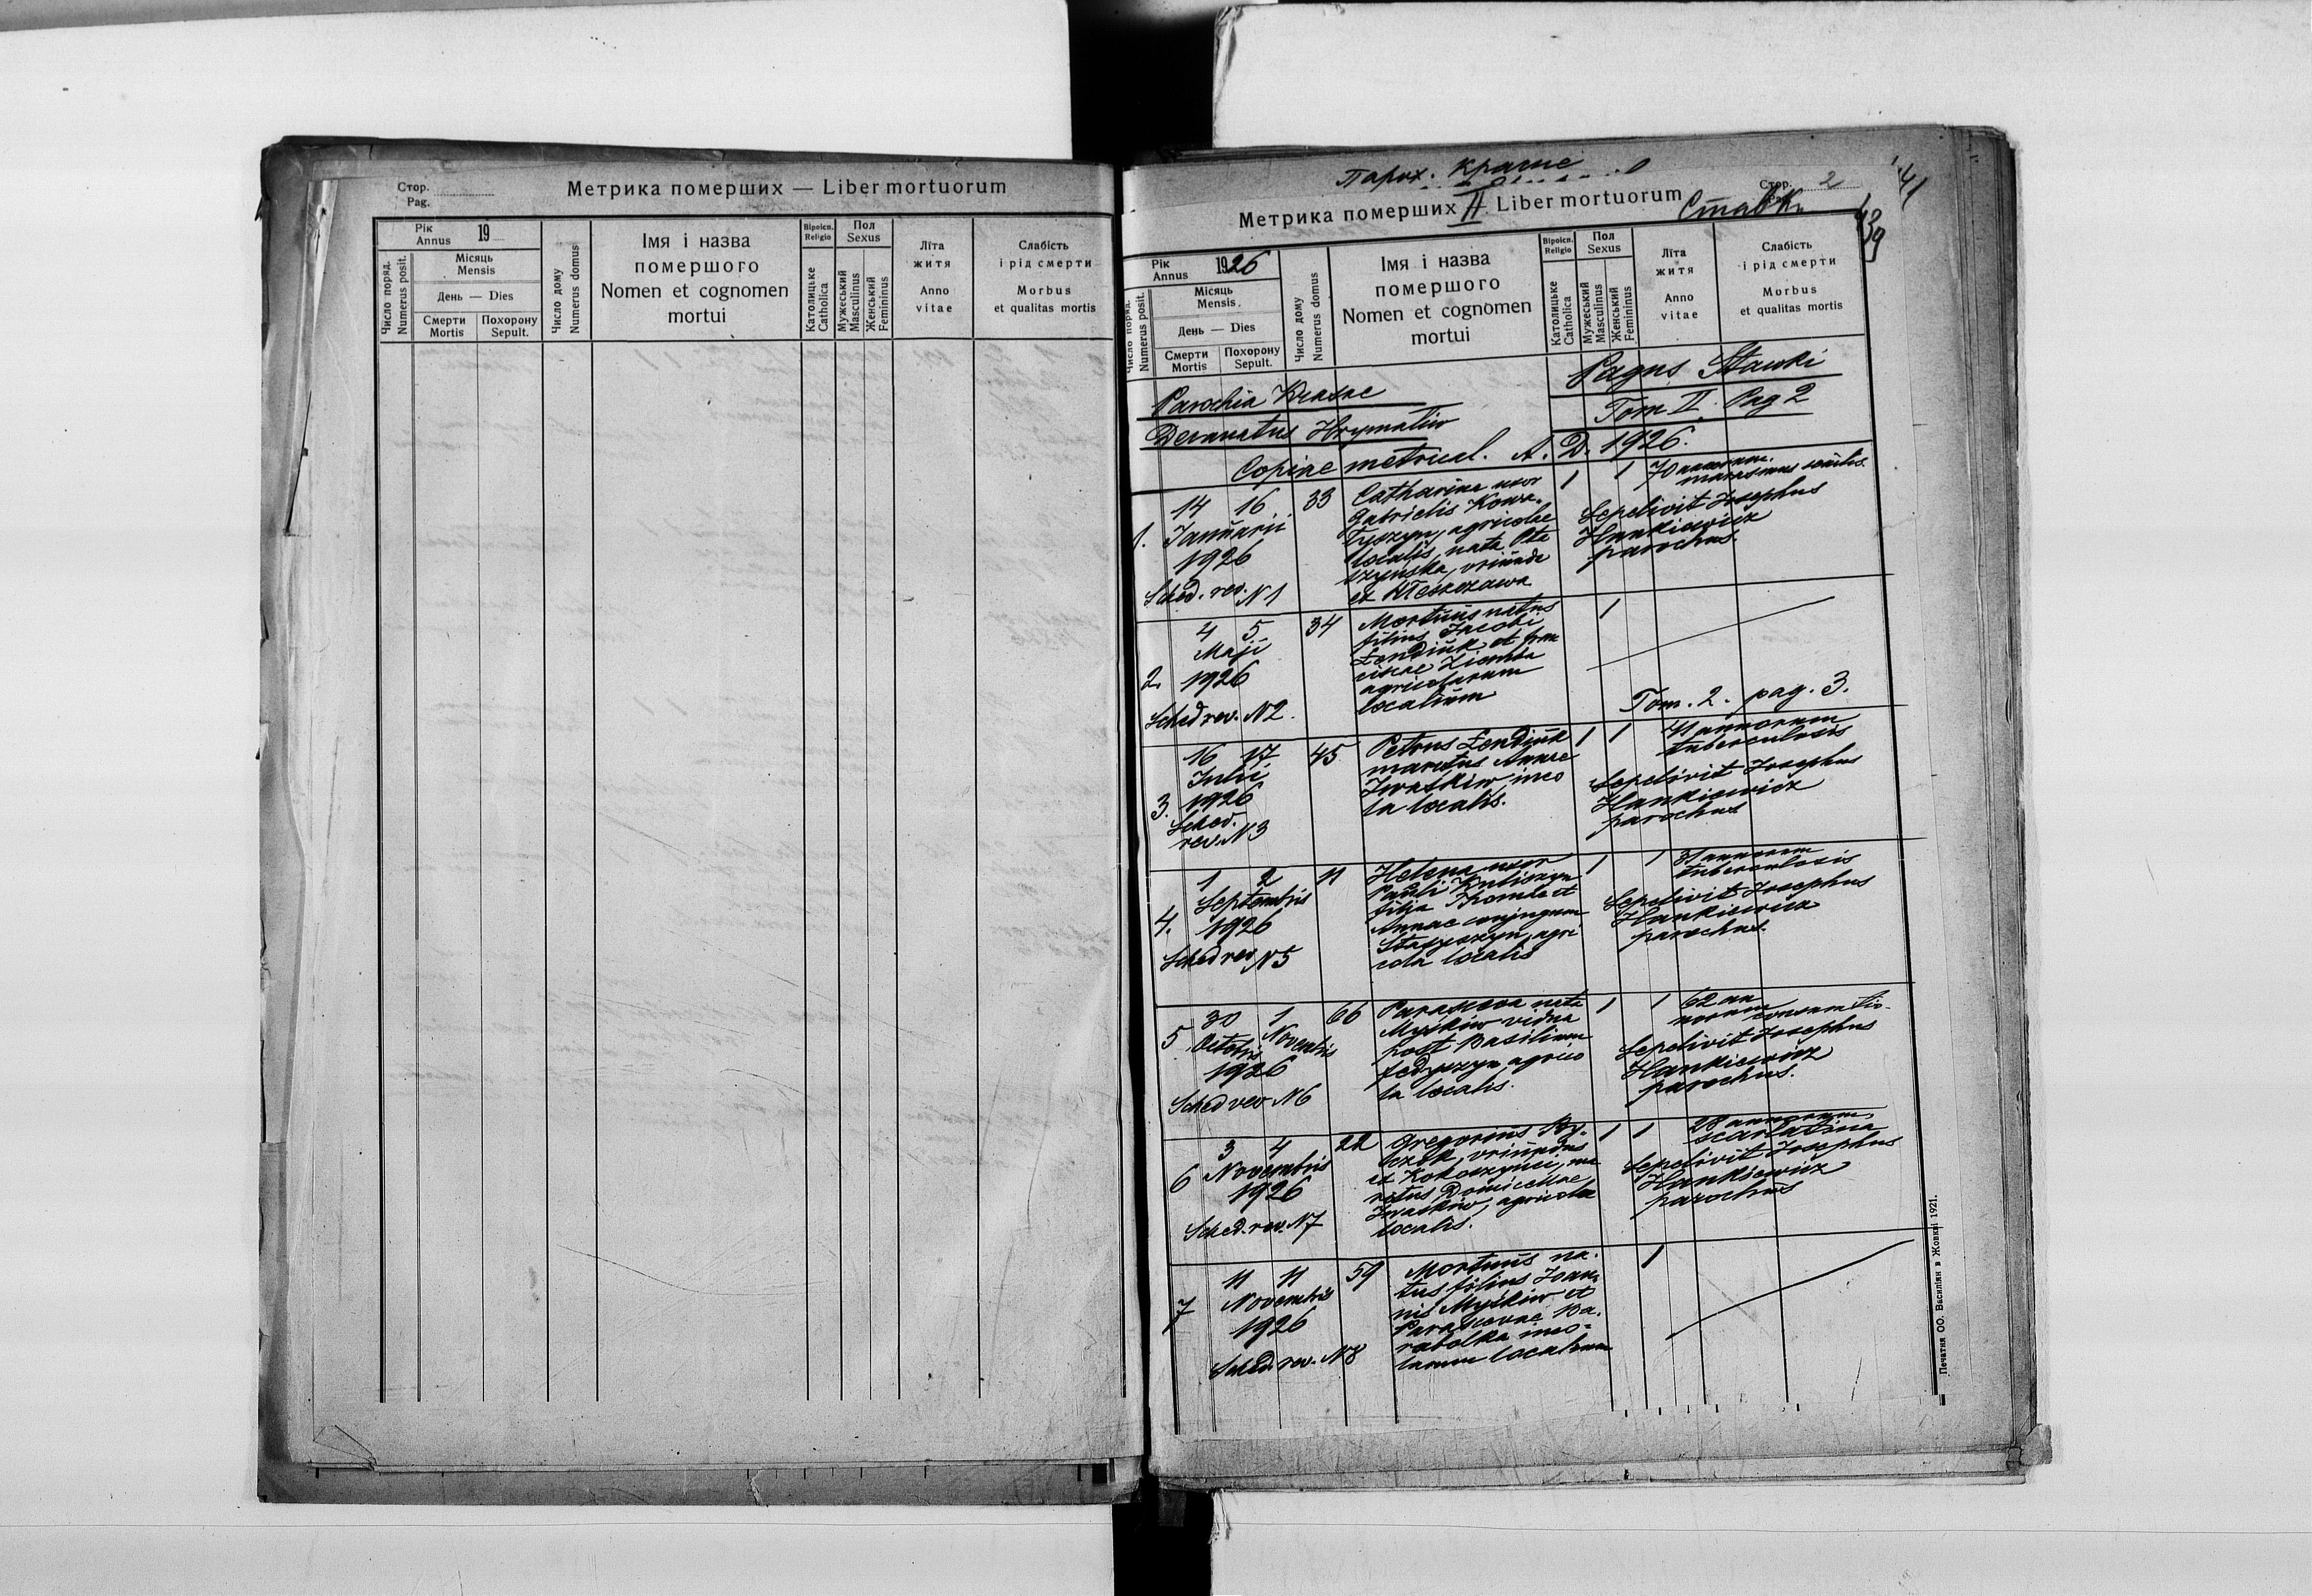 Стор.
Pag.
Метрика померших — Liber mortuorum
Рік
Annus
19
Місяць
Mensis
День — Dies
Смерти
Mortis
Похорону
Sepult.
Число поряд.
Numerus posit.
Число дому
Numerus domus
Імя і назва
помершого
Nomen et cognomen
mortui
Віроісп.
Religio
Католицьке
Catholica
Пол
Sexus
Мужеський
Masculinus
Женський
Femininus
Літа
житя
Anno
vitae
Слабість
і рід смерти
Morbus
et qualitas mortis
Парох. Красне
Метрика померших II Liber mortuorum
Стор. 2
Ставки
41
39
Рік
Annus
1926
Місяць
Mensis
День — Dies
Смерти
Mortis
Похорону
Sepult.
Число поряд.
Numerus posit.
Число дому
Numerus domus
Імя і назва
помершого
Nomen et cognomen
mortui
Віроісп.
Religio
Католицьке
Catholica
Пол
Sexus
Мужеський
Masculinus
Женський
Femininus
Літа
житя
Anno
vitae
Слабість
і рід смерти
Morbus
et qualitas mortis
Parochia Krasne
Pagus Stawki
Decanatus Hrymaliw
Tom II. Pag 2
Copiae metrical. A. D. 1926.
1.
14 16
Januarii
1926
Sched. rev. N1
33
Catharina uxor
Gabrielis Kowa-
łyszyn, agricolae
localis, nata Pta
szyńska, oriunda
ex Kleszczawa
1 1
70 annorum.
marasmus senilis.
Sepelivit Josephus
Hankiewicz
parochus.
2.
4 5
Maji
1926
Sched rev. N2.
34
Mortuus natus
filius Jacobi
Łendiuk et Fran
ciscae Ziemba
agricolarum
localium
1
Tom. 2. pag. 3.
3.
16 17
Julii
1926
Sched.
rev. N3
45
Petrus Łendiuk
maritus Annae
Iwaskiw inco
la localis.
1 1
41 annorum
tuberculosis
Sepelivit Josephus
Hankiewicz
parochus
4.
1 2
Septembris
1926
Sched rev N5
11
Helena uxor
Pauli Kubiszyn
filia Thomae et
Annae conjugum
Stasyszyn, agri
cola localis
1 1
31 annorum
tuberculosis
Sepelivit Josephus
Hankiewicz
parochus.
5
30 1
Octobris Novembris
1926
Sched rev N6
66
Parascewa nata
Myśkiw vidua
post Basilium
Fedyszyn agrico
la localis.
1 1
62 an
norum
Sepelivit Josephus
Hankiewicz
parochus.
6
3 4
Novembris
1926
Sched. rev. N7
22
Gregorius By-
czek, oriundus
ex Kokoszyńci, ma
ritus Domicellae
Iwaskiw, agricola
localis.
1 1
28 annorum,
scarlatina
Sepelivit Josephus
Hankiewicz
parochus
7
11 11
Novembris
1926
Sched. rev. N8
59
Mortuus na-
tus filius Joan-
nis Myśkiw et
Parascevae Ba-
rabolka inco-
larum localium
1
Печатня ОО. Василіян в Жовкві 1921.